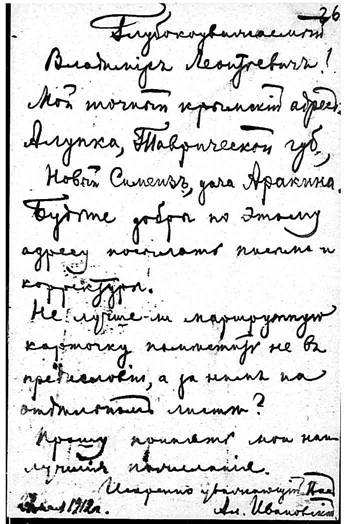 26
Глубокоуважаемый
Владимиръ Леонтьевичъ!
Мой точный крымскій адресъ:
Алупка, Таврической губ.,
Новый Симеизъ, дача Аракина.
Будьте добры по этому
адресу посылать письма и
корректуры.
Не лучше-ли маршрутную
карточку помѣстить не въ
предисловіи, а за нимъ на
отдѣльномъ листѣ?
Прошу принять мои наи-
лучшія пожеланія.
Искренно уважающій Васъ
1912 г. Ал. Ивановскій